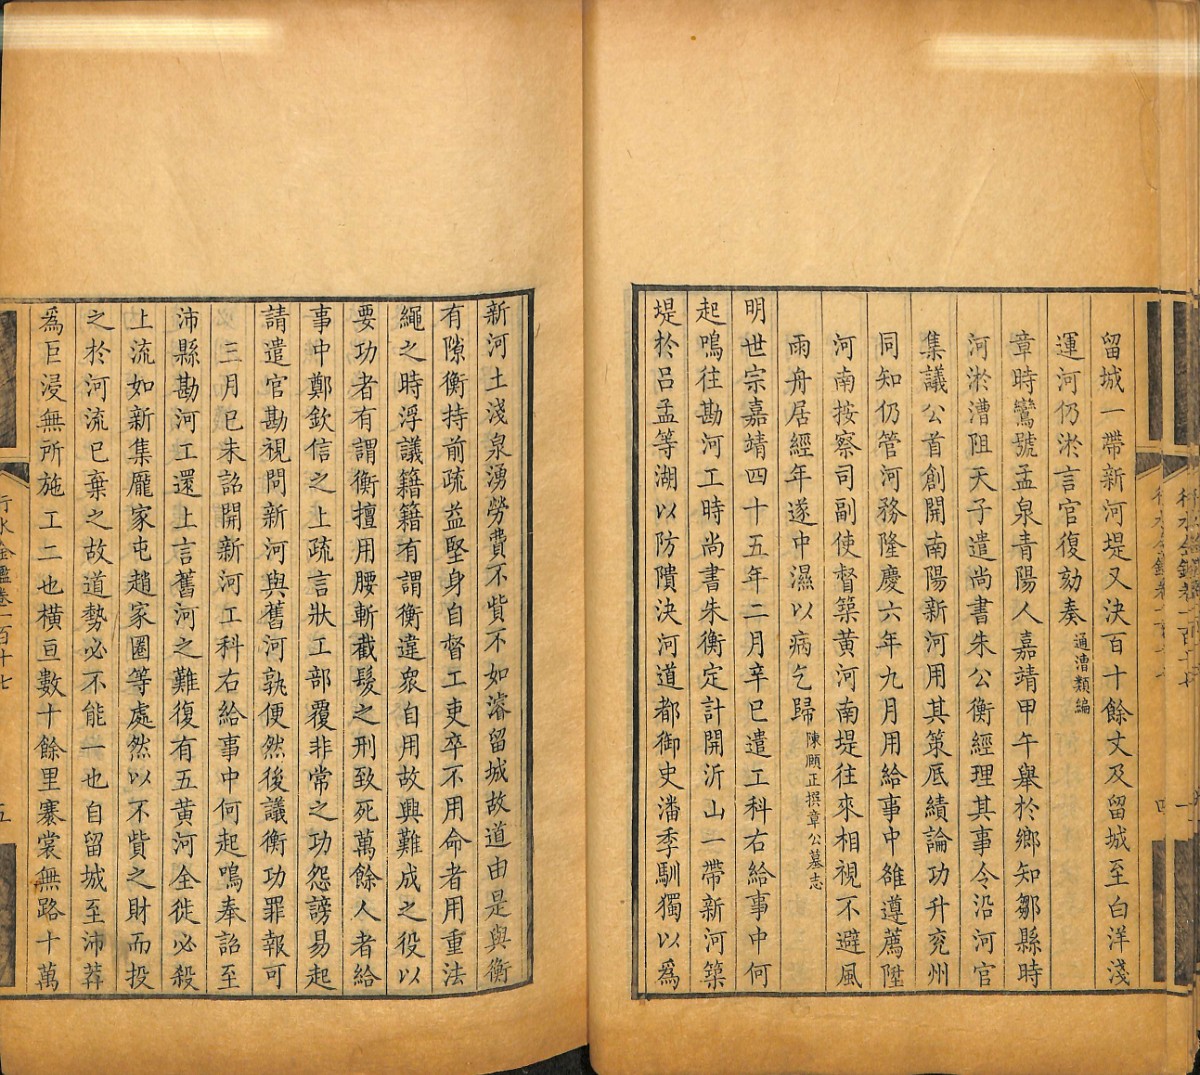 留城一帶新河堤又決百十餘丈及留城至白洋淺
運河仍淤言官復劾奏通漕類編
章時鸞號孟泉青陽人嘉靖甲午舉於鄉知鄒縣時
河淤漕阻天子遣尚書朱公衡經理其事令沿河官
集議公首創開南陽新河用其策底績論功升兖州
同知仍管河務隆慶六年九月用給事中雒遵薦陞
河南按察司副使督築黃河南堤往來相視不避風
雨舟居經年遂中濕以病乞歸陳願正撰章公墓志
明世宗嘉靖四十五年二月辛巳遣工科右給事中何
起鳴往勘河工時尚書朱衡定計開沂山一帶新河築
堤於呂孟等湖以防隤決河道都御史潘季馴獨以爲
新河土淺泉湧勞費不貲不如濬留城故道由是與衡
有隙衡持前疏益堅身自督工吏卒不用命者用重法
繩之時浮議籍籍有謂衡違眾自用故興難成之役以
要功者有謂衡擅用腰斬截髮之刑致死萬餘人者給
事中鄭欽信之上疏言狀工部覆非常之功怨謗易起
請遣官勘視問新河與舊河孰便然後議衡功罪報可
三月巳未詔開新河工科右給事中何起鳴奉詔至
沛縣勘河工還上言舊河之難復有五黃河全徙必殺
上流如新集龐家屯趙家圈等處然以不貲之財而投
之於河流已棄之故道勢必不能一也自留城至沛莽
爲巨浸無所施工二也橫亘數十餘里褰裳無路十萬
行水金鑑卷一百十七
五